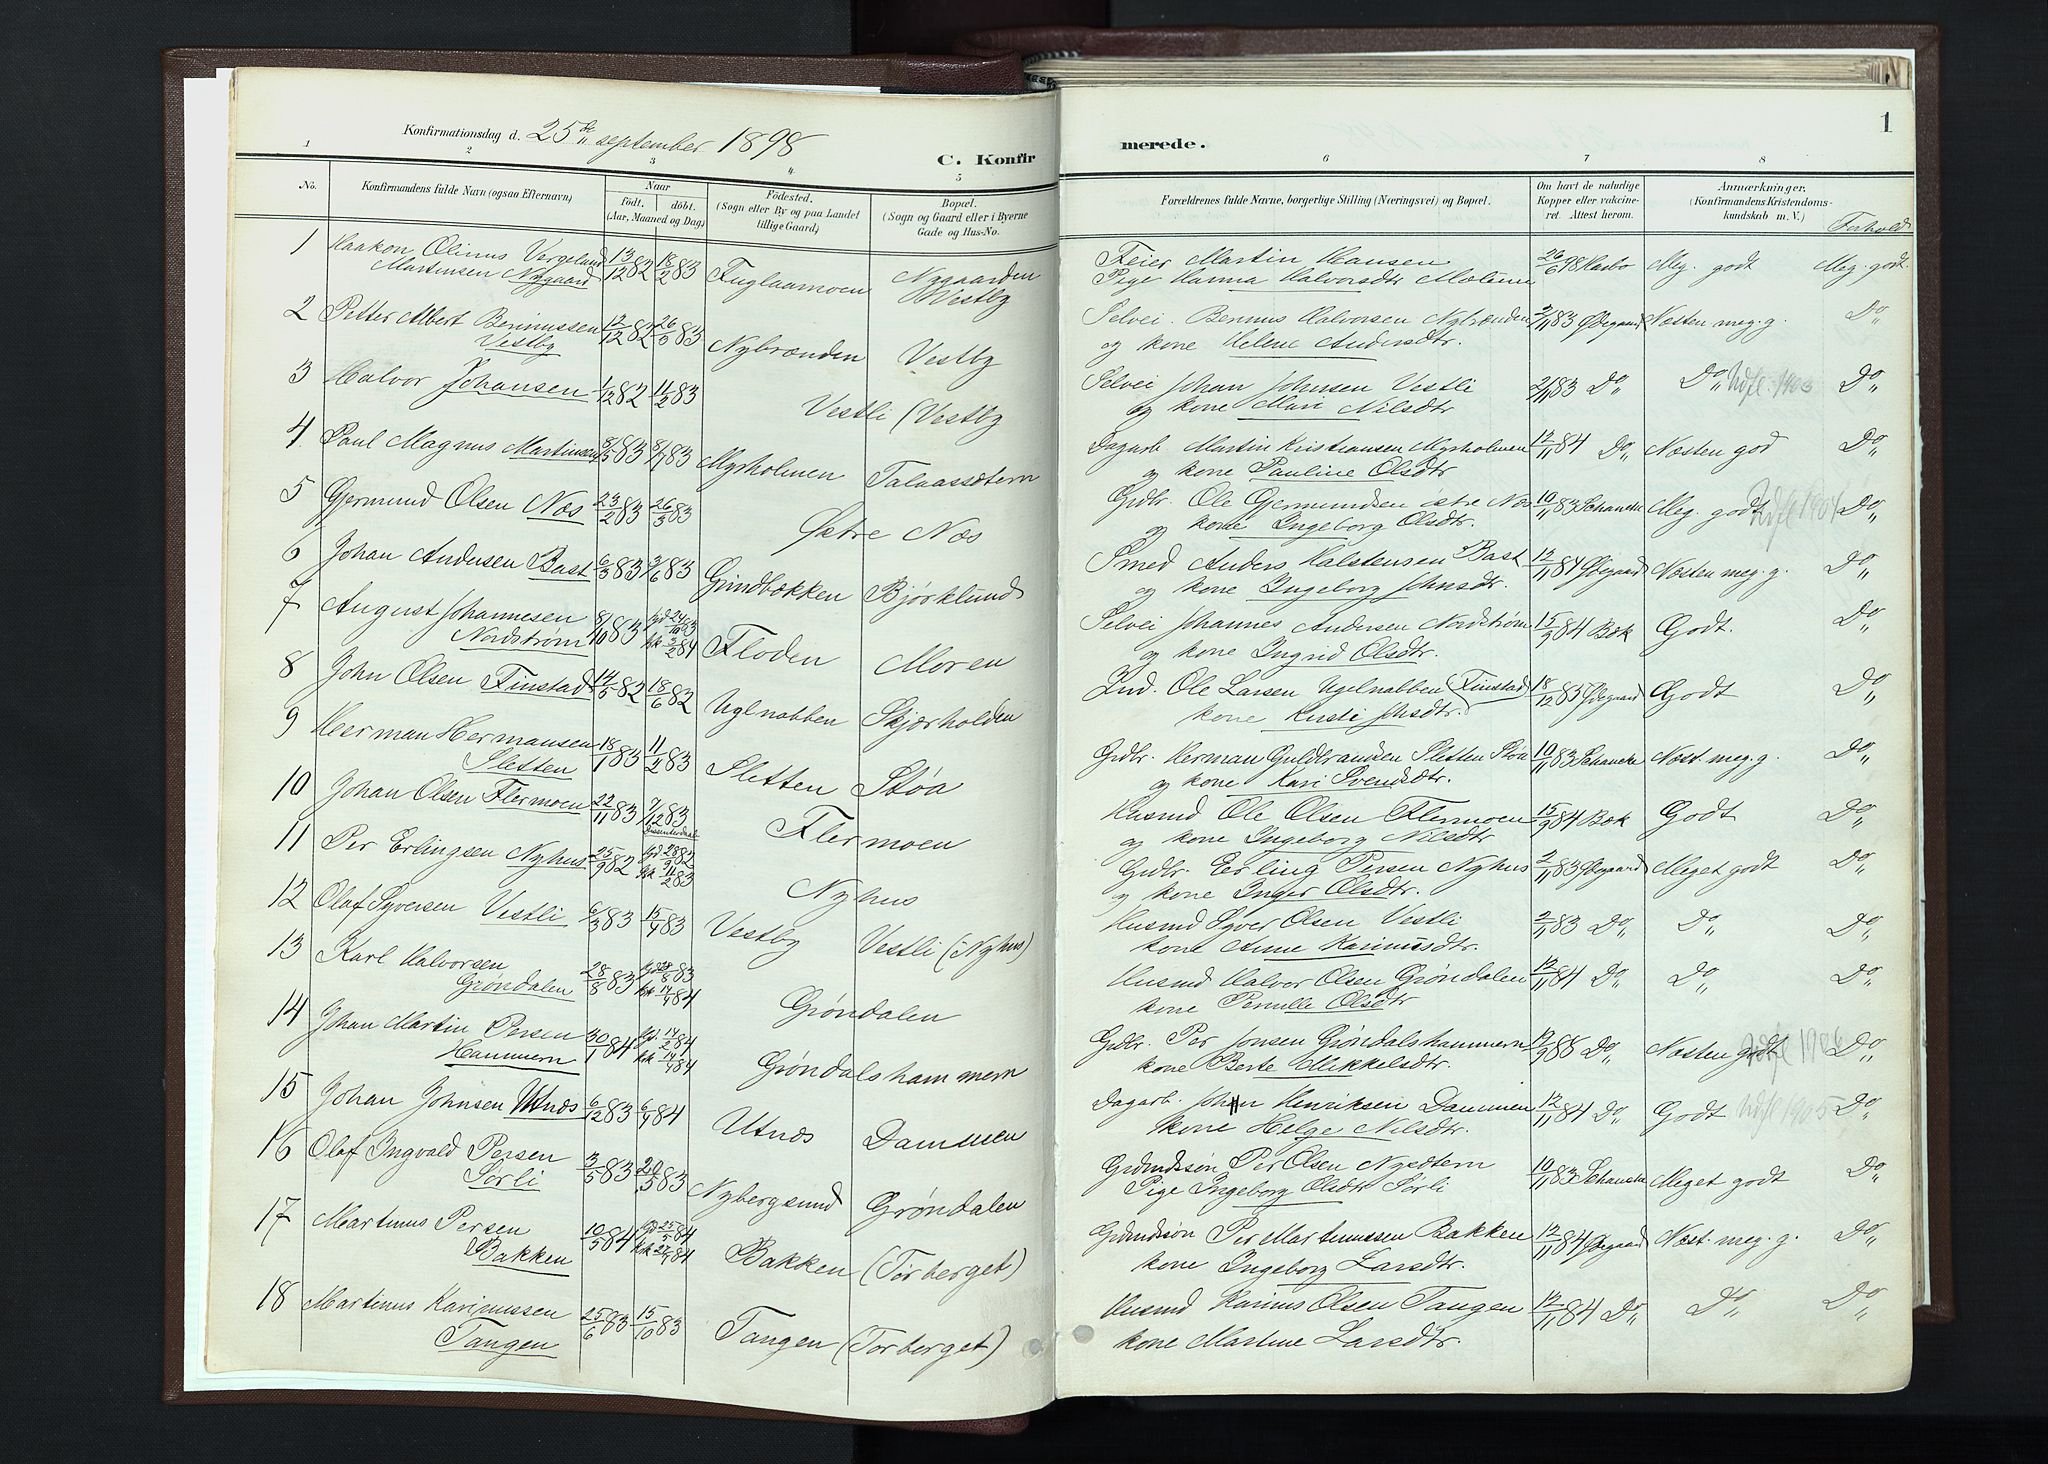 1
Konfirmationsdag d. 25de september 1898
C. Konfir merede.
1 2 3 4 5 6 7 8
No.
Konfirmandens fulde Navn (ogsaa Efternavn)
Naar
født. døbt.
(Aar, Maaned og Dag)
Fødested.
(Sogn eller By og paa Landet
tillige Gaard)
Bopæl.
(Sogn og Gaard eller i Byerne
Gade og Hus-No.
Forældrenes fulde Navne, borgerlige Stilling (Næringsvei) og Bopæl.
Om havt de naturlige
Kopper eller vakcine-
ret. Attest herom.
Anmærkninger.
(Konfirmandens Kristendoms-
kundskab m. V.)
Forhold
1 Haakon Olinus Vergeland 13/12 82 18/2 83 Fuglaamoen Nygaarden Feier Martin Hansen 26/6 98 Meg. godt Meg. godt.
Martinsen Nygaard Vestby Pige Hanna Halvorsdtr
2 Petter Albert Berinussen 12/12 82 26/3 83 Nybrænden Vestby Selvei. Berinus Halvorsen Nybrænden 2/11 83 Ødegaard Næsten meg. g. Do
Vestby og kone Helene Andersdtr.
3 Halvor Johansen 1/12 82 11/2 83 Vestli (Vestby Selvei Johan Johnsen Vestli 2/11 83 Do Do Udfl. 1903 Do
og kone Mari Nilsdtr
4 Paul Magnus Martinsen 8/5 83 8/7 83 Myrholmen Talaassætern Dagarb. Martin Kristiansen Myrholmen 12/11 84 Do Næsten god Do
og kone Pauline Olsdtr
5 Gjermund Olsen Næs 23/2 83 26/3 83 Østre Næs Grdbr. Ole Gjermundsen østre Næs 10/11 83 Schancke Meg. godt Do
og kone Ingeborg Olsdtr.
6 Johan Andersen Bast 6/3 83 3/6 83 Grindbækken Bjørklund Smed Anders Halstensen Bast 12/11 84 Ødegaard Næsten meg. g. Do
og kone Ingeborg Johnsdtr.
7 August Johannesen 8/10 83 hjd 24/10 83 Floden Moren Selvei Johannes Andersen Nordstrøm 15/9 84 Bæk Godt. Do
Nordstrøm kirk 3/2 84 og kone Ingrid Olsdtr.
8 John Olsen Finstad 14/5 82 18/6 82 Uglnabben Skjærholden Ind. Ole Larsen Ugelnabben (Finstad) 18/12 83 Ødegaard Godt Do
kone Kersti Johsdtr.
9 Herman Hermansen 18/1 83 11/2 83 Sletten Støa Grdbr. Herman Guldbrandsen Sletten Støa 10/11 83 Schancke Næst. meg. g. Do
Sletten og kone Kari Svendsdtr.
10 Johan Olsen Flermoen 22/11 83 7/12 83 Flermoen Husmd Ole Olsen Flermoen 15/9 84 Bæk Godt Do
og kone Ingeborg Nilsdtr
11 Per Erlingsen Nyhus 25/9 82 hjd 28/9 82 Nyhus Grdbr. Erling Persen Nyhus 2/11 83 Ødegaard Meget godt Do
kirk 11/2 83 og kone Inger Olsdtr.
12 Olaf Syversen Vestli 6/3 83 15/4 83 Vestby Vestli (i Nyhus) Husmd Syver Olsen Vestli 2/11 83 Do Do Do
kone Anne Karinusdtr.
13 Karl Halvorsen 28/8 83 hjd 28/8 83 Grøndalen Husmd Halvor Olsen Grøndalen 12/11 84 Do Do Do
Grøndalen kirk 14/4 84 kone Pernille Olsdtr
14 Johan Martin Persen 30/1 84 hjd. 14/2 84 Grøndalshammern Grdbr. Per Jonsen Grøndalshammern 17/9 88 Do Næsten godt Do
Hammern kirk 14/4 84 kone Berte Mikkelsdtr.
15 Johan Johnsen Utnæs 6/12 83 6/4 84 Utnæs Dammen Dagarb. John Henriksen Dammen 12/11 84 Do Godt Udfl 1905 Do
kone Helge Nilsdtr.
16 Olaf Ingvald Persen 3/5 83 20/5 83 Nybergsund Grøndalen Grdmdssøn Per Olsen 10/11 83 Schancke Meget godt Do
Sørli Pige Ingeborg Olsdtr Sørli
17 Martinus Persen 10/5 84 hjd 25/5 84 Bakken (Torberget) Grdmdssøn Per Martinussen Bakken 12/11 84 Ødegaard Næst. meg. g. Do
Bakken kirk 27/7 84 kone Ingeborg Larsdtr.
18 Martinus Karinussen 25/6 83 15/10 83 Tangen (Torberget) Husmd Karinus Olsen Tangen 12/11 84 Do Do Do
Tangen kone Martine Larsdtr.